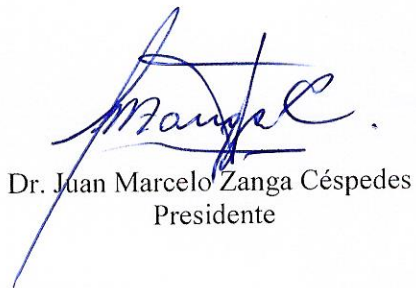 Dr. Juan Marcelo Zanga Céspedes
Presidente